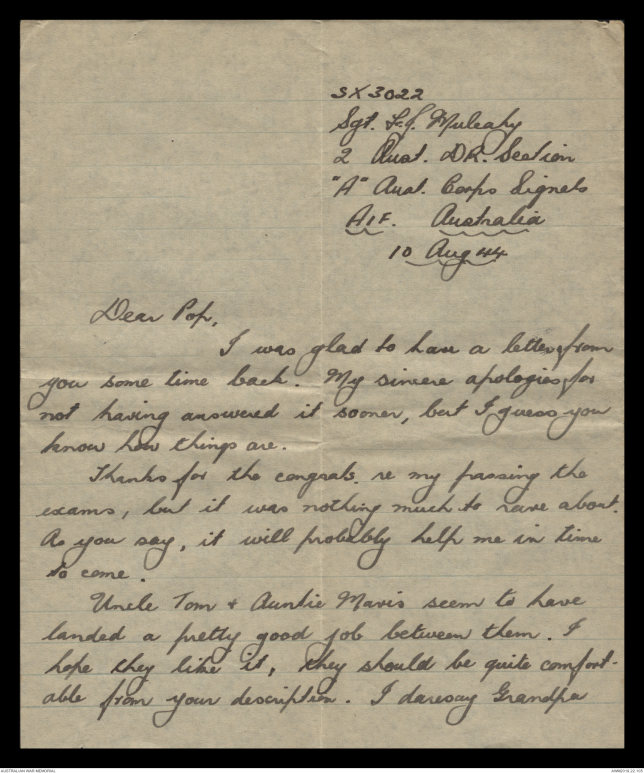 SX3022
Sgt. L.J. Mulcahy
2 Aust. D.R. Section
"A" Aust. Corps Signals
AIF. Australia
10 Aug 44
Dear Pop,
I was glad to have a letter from
you some time back. My sincere apologies for
not having answered it sooner, but I guess you
know how things are.
Thanks for the congrats. re my passing the
exams, but it was nothing much to rave about.
As you say, it will probably help me in time
to come.
Uncle Tom + Auntie Mavis seem to have
landed a pretty good job between them. I
hope they like it, they should be quite comfort-
able from your description. I daresay Grandpa
AUSTRALIAN WAR MEMORIAL